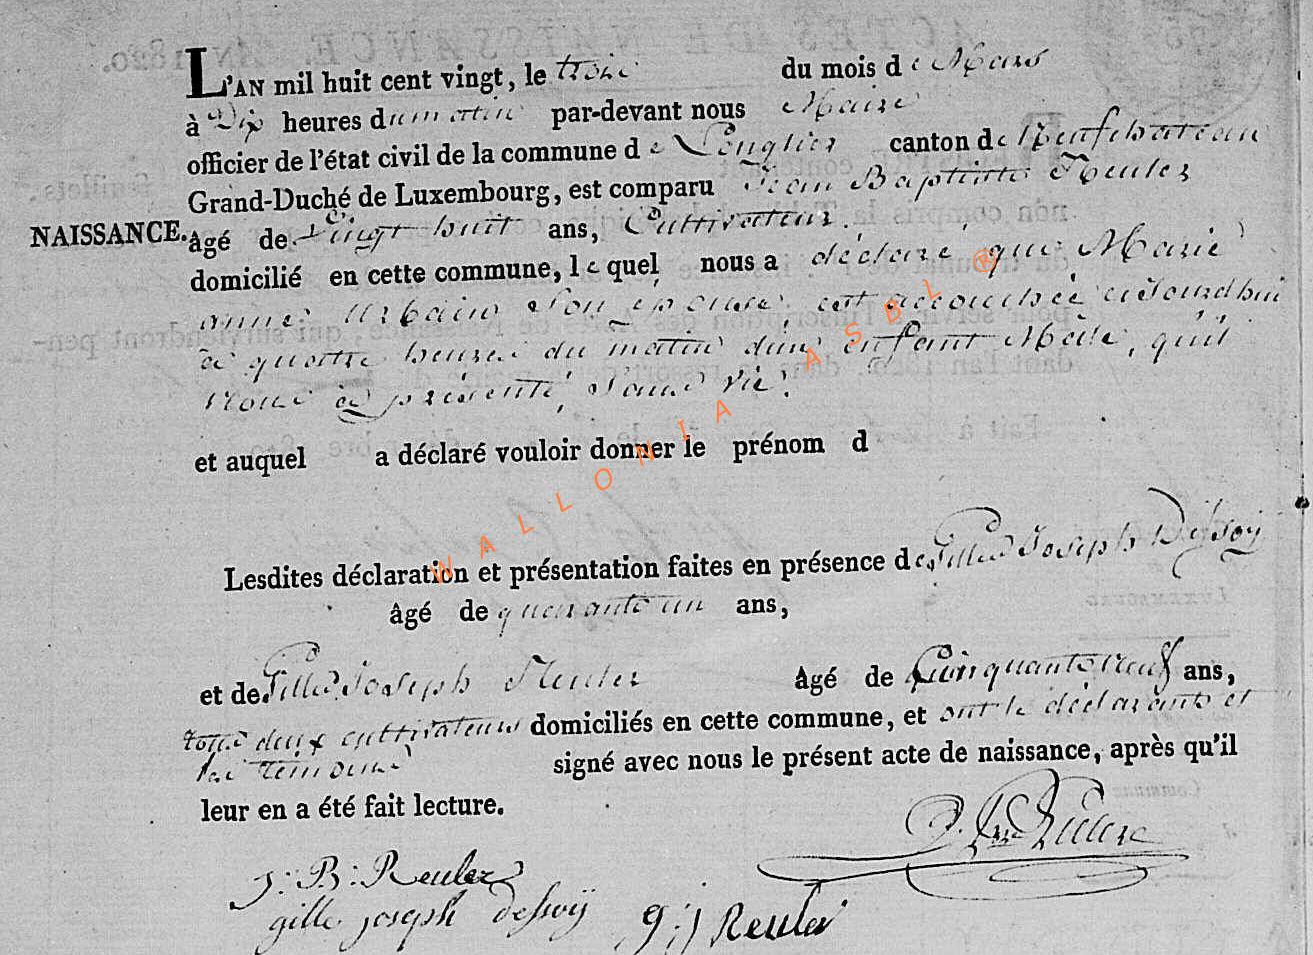 L'AN mil huit cent vingt, le trois du mois de Mars
à Dix heures du matin par-devant nous Maire
officier de l'état civil de la commune de Longlier canton de Neufchateau
Grand-Duché de Luxembourg, est comparu Jean Baptiste Reuler
NAISSANCE. âgé de Vingt huit ans, Cultivateur.
domicilié en cette commune, lequel nous a déclaré que Marie
anne Urbain son epouse est accouchée aujourdhui
a quatre heures du matin d'un enfant Male, qu'il
Nous a présenté, sans vie.
et auquel a déclaré vouloir donner le prénom d
Lesdites déclaration et présentation faites en présence de Gille Joseph Desoÿ
âgé de quarante un ans,
et de Gille Joseph Reuler âgé de Cinquante neuf ans,
tous deux cultivateurs domiciliés en cette commune, et ont le déclarants et
les temoins signé avec nous le présent acte de naissance, après qu'il
leur en a été fait lecture.
J: B: Reuler
gille joseph desoÿ
g: j Reuler
WALLONIA ASBL ®